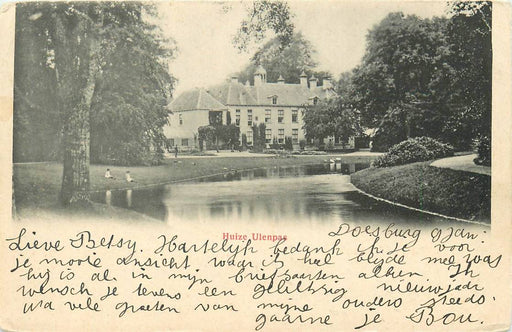 Huize Ulenpas
Doesburg 9 Jan:
Lieve Betsy. Hartelijk bedank ik je voor
je mooie ansicht waar ik heel blijde mee was
hij is al in mijn briefkaarten album. Ik
wensch je tevens een gelukkig nieuwjaar
na vele groeten van mijne ouders steeds
gaarne je Bou.